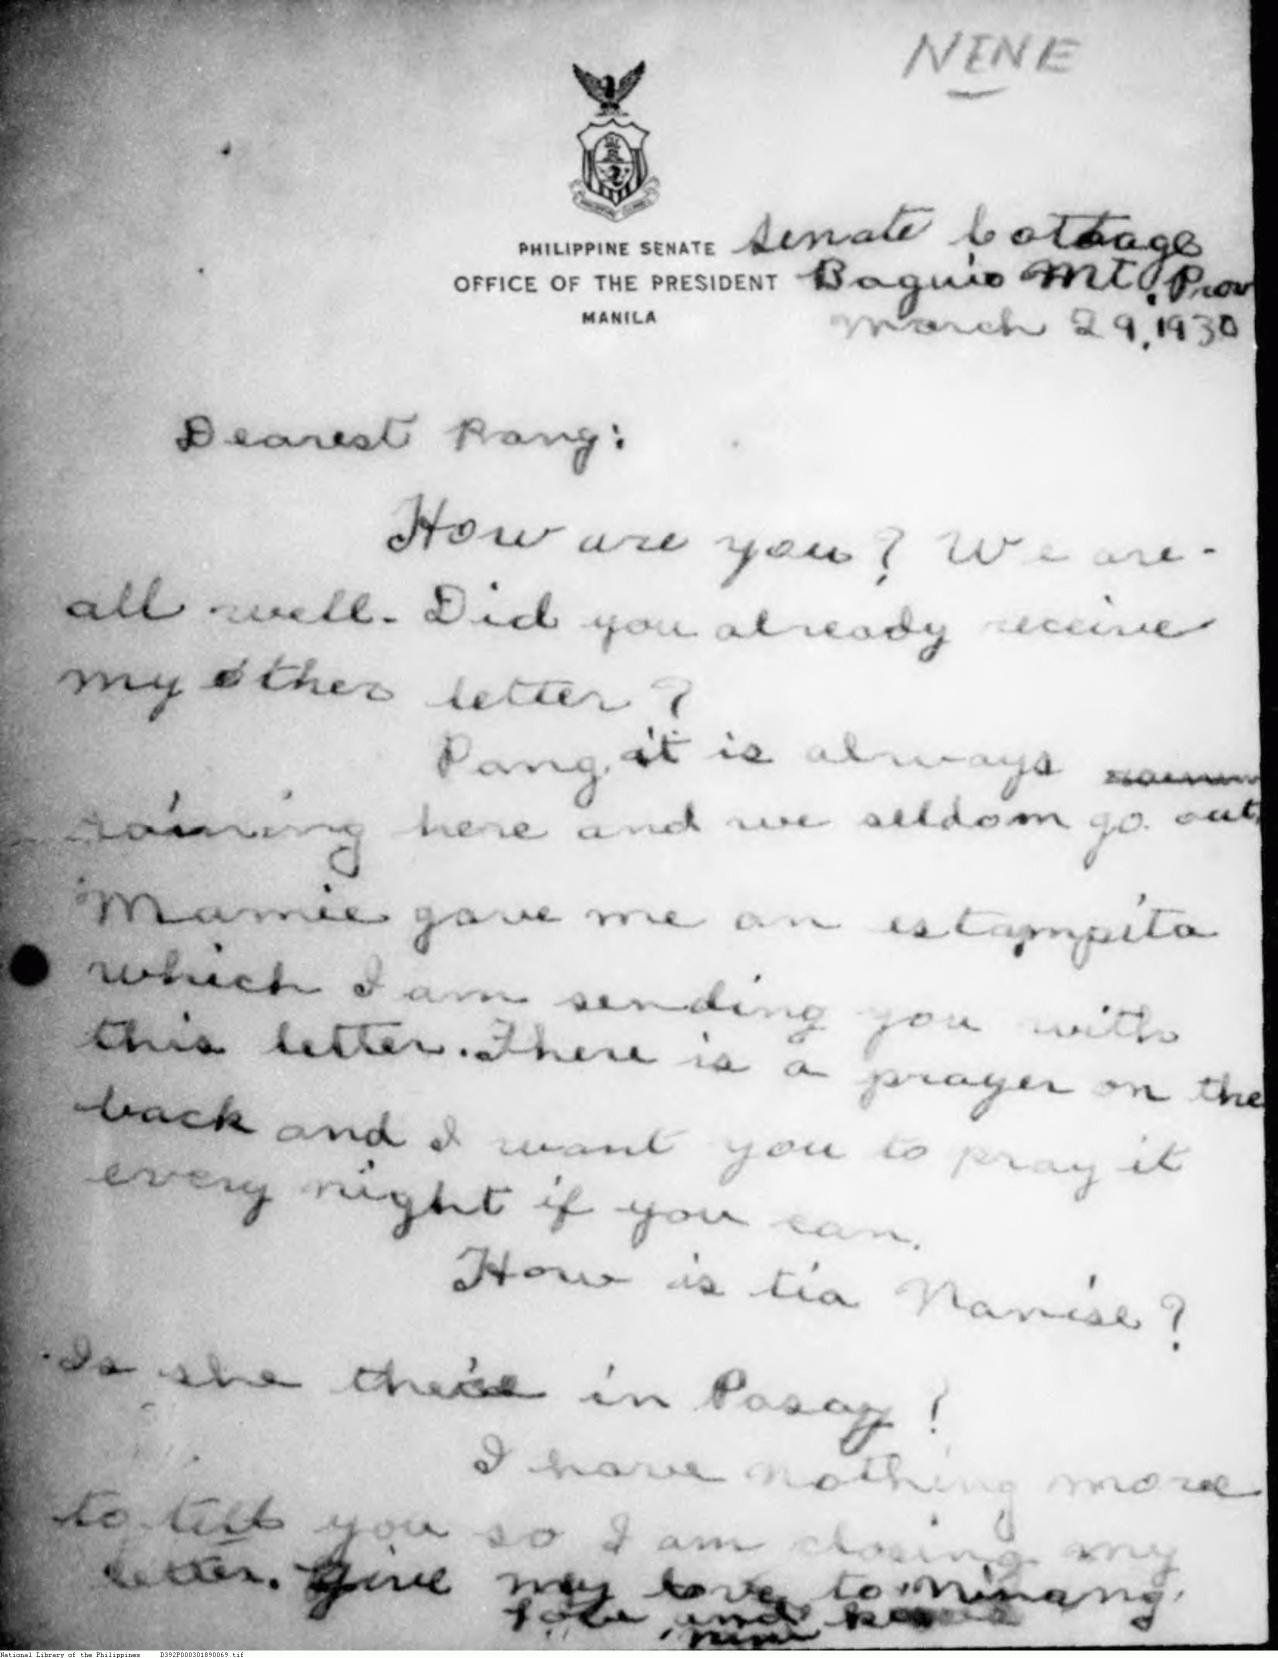 NENE
PHILIPPINE SENATE
OFFICE OF THE PRESIDENT
MANILA
Senate Cottage
Baguio Mt. Prov
March 29, 1930
Dearest Pang:
How are you? We are
all well. Did you already receive
my other letter?
Pang, it is always
raining here and we seldom go out.
Mamie gave me an estampita
which I am sending you with
this letter. There is a prayer on the
back and I want you to pray it
every night if you can.
How is tia Nanise?
Is she there in Pasay?
I have nothing more
to tell you so I am closing my
letter. Give my love to Ninang.
Love and
National Library of the Philippines D392P000301890069.tif